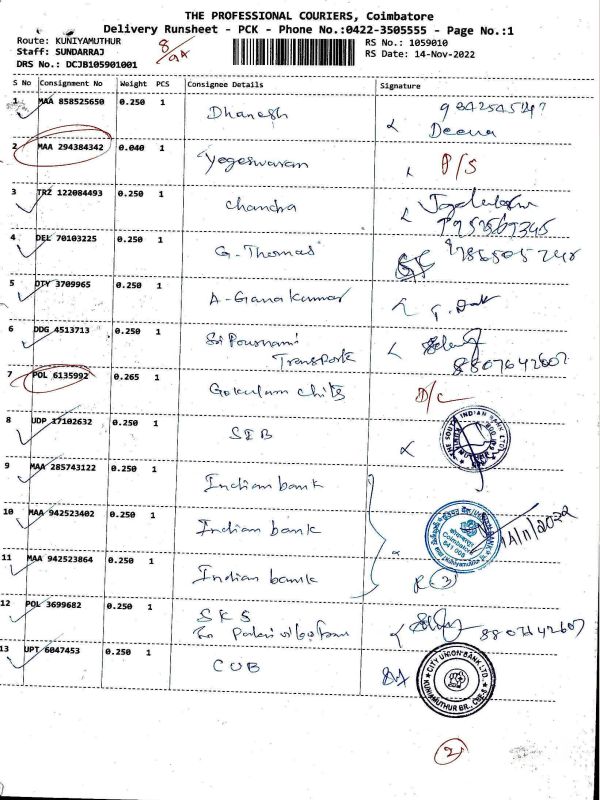 THE PROFESSIONAL COURIERS, Coimbatore
Delivery Runsheet - PCK - Phone No.:0422-3505555 - Page No.:1
Route: KUNIYAMUTHUR
Staff: SUNDARRAJ
DRS No.: DCJB105901001
RS No.: 1059010
RS Date: 14-Nov-2022
S No Consignment No Weight PCS Consignee Details Signature
1 MAA 858525650 0.250 1 Dhanesh
Deena
2 MAA 294384342 0.040 1 Yogeswaran D/S
3 TRZ 122084493 0.250 1 Chandra
4 DEL 70103225 0.250 1 G. Thomas
5 DTY 3709965 0.250 1 A-Gana Kumar
6 DDG 4513713 0.250 1 Sri Pournami
Transport
8807642607
7 POL 6135992 0.265 1 Gokulam Chits D/C
8 UDP 17102632 0.250 1 SIB
THE SOUTH INDIAN BANK LTD.
9 MAA 285743122 0.250 1 Indian bank
10 MAA 942523402 0.250 1 Indian bank
Coimbatore
641 008
14/11/2022
11 MAA 942523864 0.250 1 Indian bank
R 3
12 POL 3699682 0.250 1 SKS
8807642607
13 UPT 6047453 0.250 1 CUB
CITY UNION BANK LTD.
KUNIAMUTHUR BR., CBE-8
2